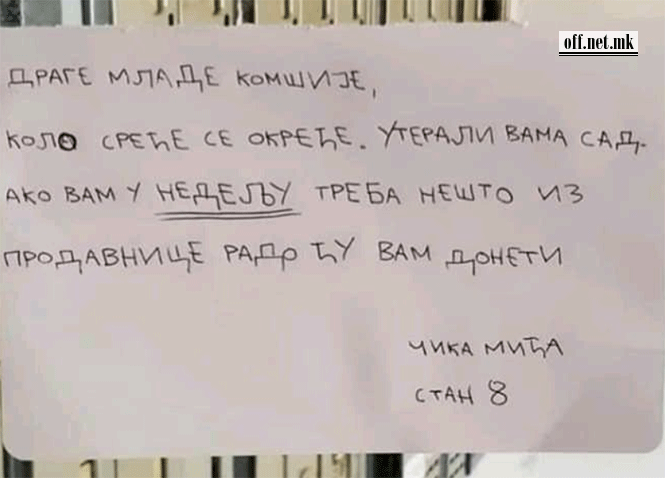 off.net.mk
ДРАГЕ МЛАДЕ КОМШИЈЕ,
КОЛО СРЕЋЕ СЕ ОКРЕЋЕ. УТЕРАЛИ ВАМА САД.
АКО ВАМ У НЕДЕЉУ ТРЕБА НЕШТО ИЗ
ПРОДАВНИЦЕ РАДО ЋУ ВАМ ДОНЕТИ
ЧИКА МИЋА
СТАН 8